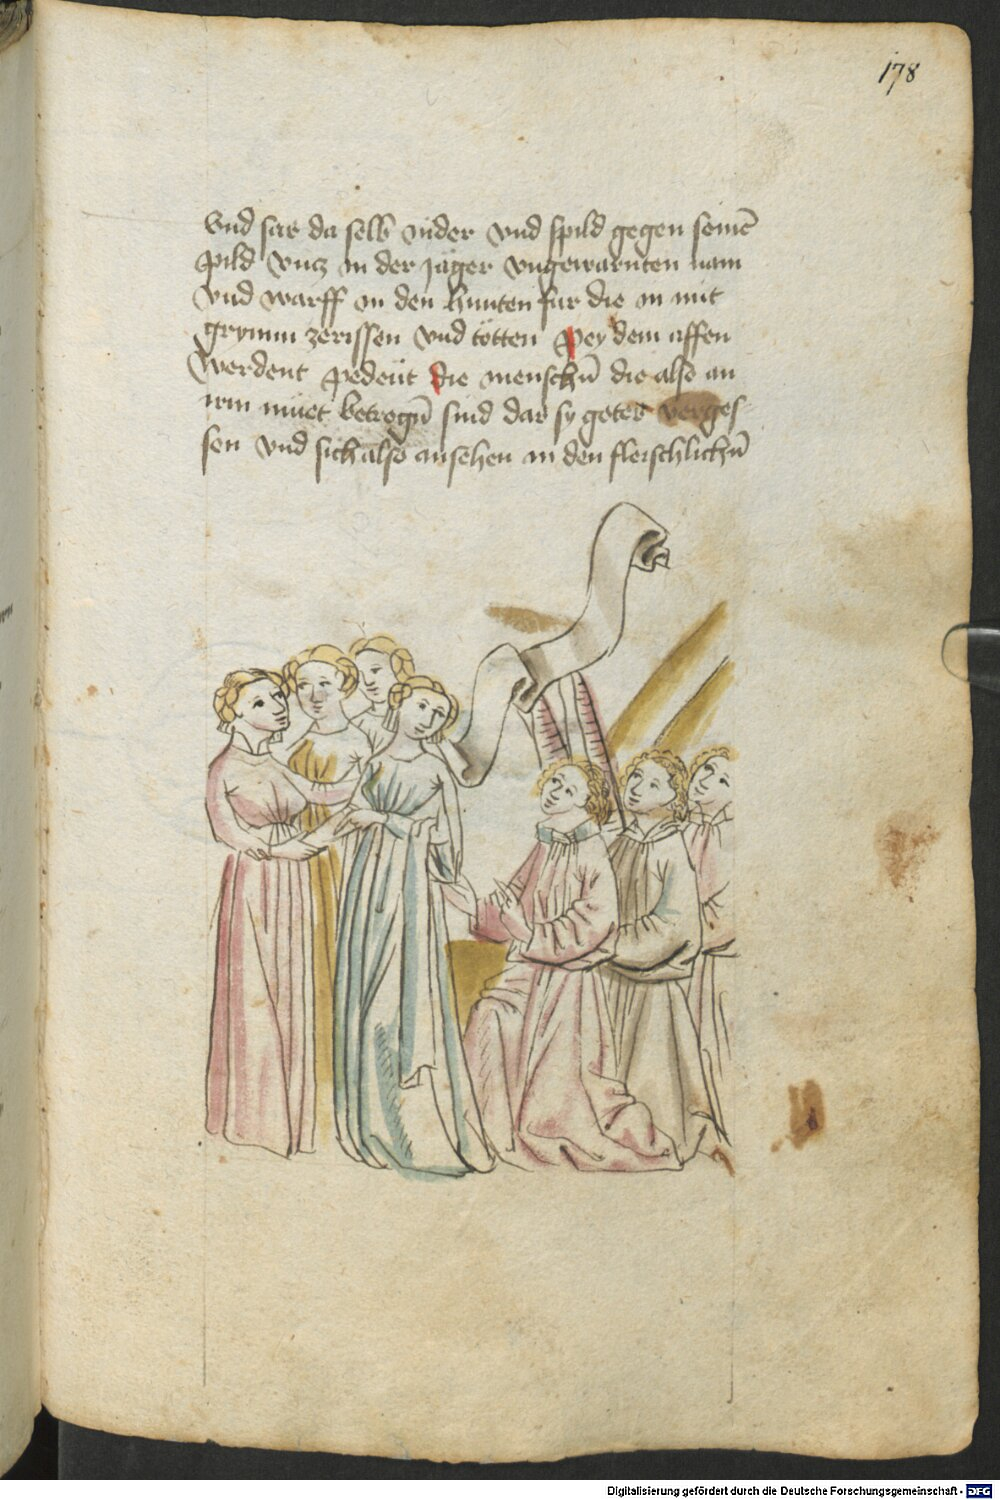 178
Vnd sas da selb nider vnd spild gegen seinē
pild vncz in der jäger vngewarnten nam
vnd warff in den hunten für die in mit
grymm zerissen vnd tötten Pey dem affen
werdent pedeüt die menschn̄ die also an
irm müet betrogn̄ sind das sy gotes verges
sen vnd sich also ansehen in den fleischlichn̄
Digitalisierung gefördert durch die Deutsche Forschungsgemeinschaft - DFG